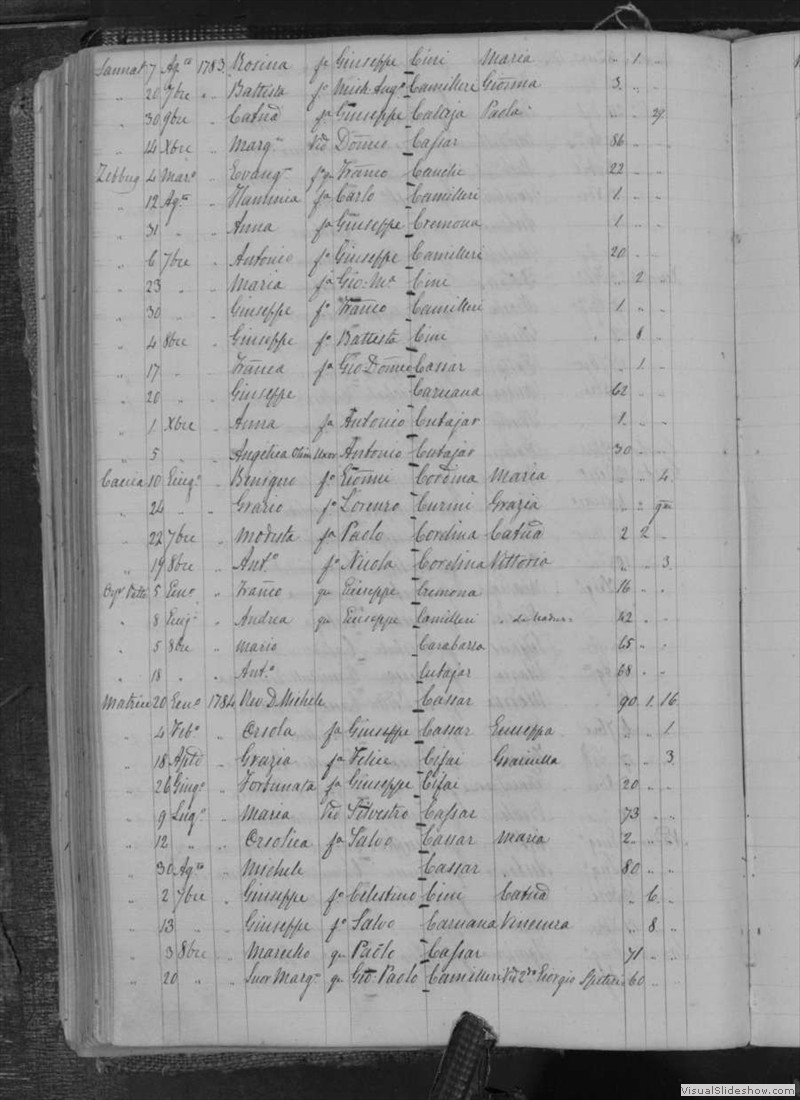 Sannat 7 Agto 1783 Rosina fa Giuseppe Cini Maria " 1 "
" 20 7bre " " Battista fo Mich Ango Camilleri Gionna 3 " "
" 30 9bre " " Catnd fa Giuseppe Calleja Paola " " 29
" 14 Xbre " " Margta Vid Domco Cassar 86 " "
Zebbug 4 Marzo " Evangta Franco Cauchi 22 " "
" 12 Agto " Flaminia fa Carlo Camilleri 1 " "
" 31 " " Anna fa Giuseppe Cremona 1 " "
" 6 7bre " Antonio fo Giuseppe Camilleri 20 " "
" 23 " " Maria fa Gio: Ma Cini " 2 "
" 30 " " Giuseppe fo Franco Camilleri 1 " "
" 4 8bre " Giuseppe fo Battista Cini " 8 "
" 17 " " Franca fa Gio Domco Cassar " 1 "
" 20 " " Giuseppe Caruana 62 " "
" 1 Xbre " Anna fa Antonio Cutajar 1 " "
" 5 " " Angelica Olim Uxor Antonio Cutajar 30 " "
Caccia 10 Giugo " Benigno fo Gionni Cordina Maria " " 4
" 24 " " Grazio fo Lorenzo Curmi Grazia " 2
" 22 7bre " Modesta fa Paolo Cordina Catnd 2 2 "
" 19 8bre " Anto fo Nicola Cordina Vittoria " " 3
5 Geno " Franco qm Giuseppe Cremona 16 " "
" 8 Giugo " Andrea qm Giuseppe Camilleri 42 " "
" 5 8bre " Mario Carabazza 65 " "
" 18 " " Anto Cutajar 68 " "
Matrice 20 Geno 1784 Rev. D. Michele Cassar 90 1 16
" 4 Febo " Orsola fa Giuseppe Cassar Giuseppa " " 1
" 18 " Grazia fa Felice Cifai " " 3
" 26 Giugo " Fortunata fa Giuseppe Cifai 20 " "
" 9 Lugo " Maria Vid Silvestro Cassar 73 " "
" 12 " " Orsolica fa Salvo Cassar Maria 2 " "
" 30 Agto " Michele Cassar 80 " "
" 2 7bre " Giuseppe fo Celestino Cini Catnd " 6 "
" 13 " " Giuseppe fo Salvo Caruana Vincenza " 8 "
" 3 8bre " Marcello qm Paolo Cassar 71 " "
" 20 " " Suor Margta qm Gio: Paolo Camilleri Giorgio Spiteri 60 " "
VisualSlideshow.com